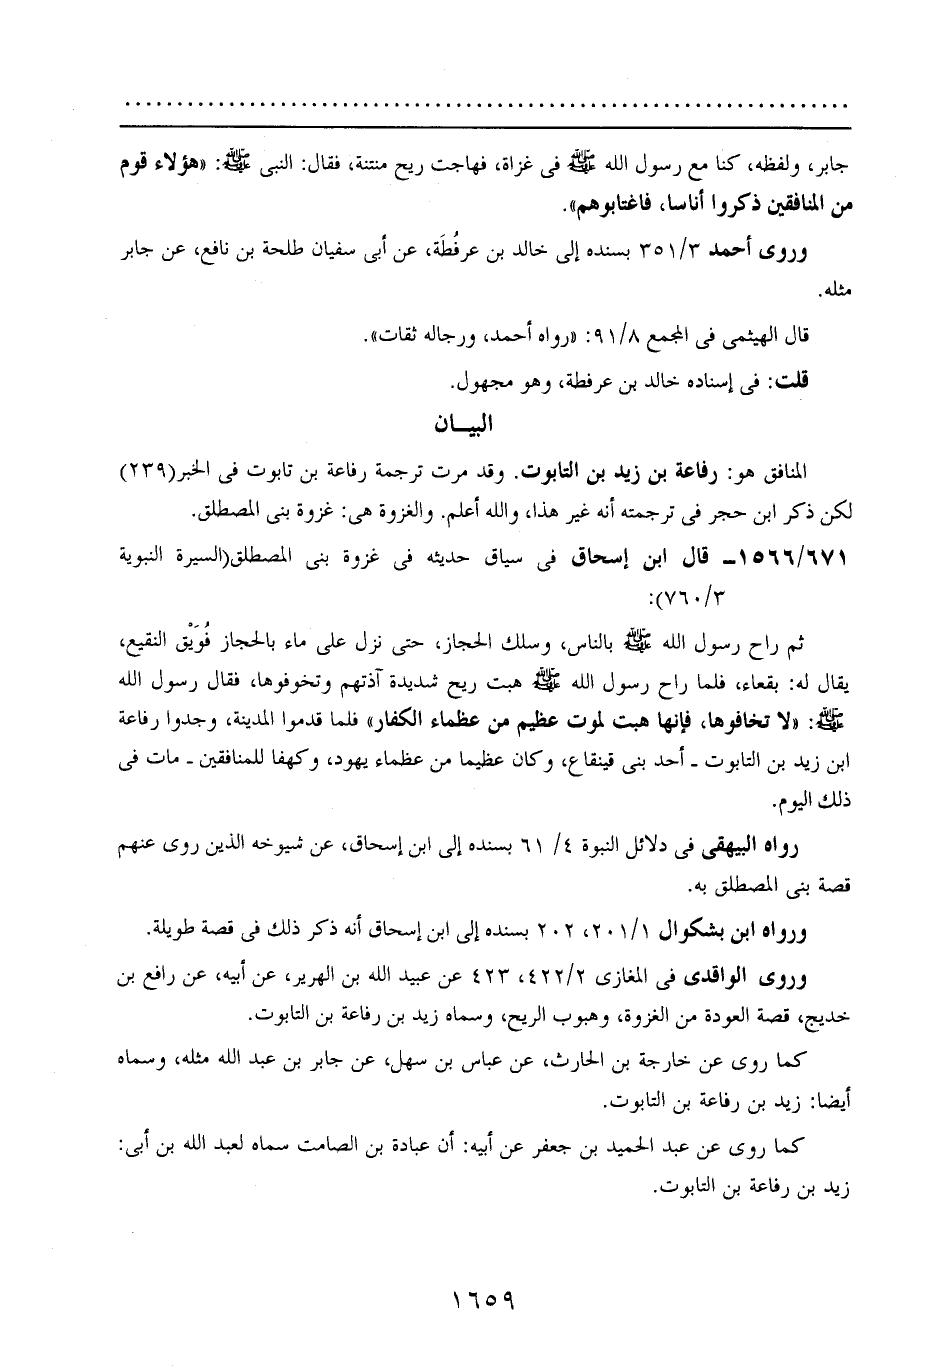 جابر، ولفظه، كنا مع رسول الله ﷺ فى غزاة، فهاجت ريح منتنة، فقال: النبى ﷺ: «هؤلاء قوم
من المنافقين ذكروا أناسا، فاغتابوهم».
وروى أحمد ٣٥١/٣ بسنده إلى خالد بن عرفُطَة، عن أبى سفيان طلحة بن نافع، عن جابر
مثله.
قال الهيثمى فى المجمع ٩١/٨: «رواه أحمد، ورجاله ثقات».
قلت: فى إسناده خالد بن عرفطة، وهو مجهول.
البيـــان
المنافق هو: رفاعة بن زيد بن التابوت. وقد مرت ترجمة رفاعة بن تابوت فى الخبر(٢٣٩)
لكن ذكر ابن حجر فى ترجمته أنه غير هذا، والله أعلم. والغزوة هى: غزوة بنى المصطلق.
١٥٦٦/٦٧١ـ قال ابن إسحاق فى سياق حديثه فى غزوة بنى المصطلق(السيرة النبوية
٧٦٠/٣):
ثم راح رسول الله ﷺ بالناس، وسلك الحجاز، حتى نزل على ماء بالحجاز فُوَيْق النقيع،
يقال له: بقعاء، فلما راح رسول الله ﷺ هبت ريح شديدة آذتهم وتخوفوها، فقال رسول الله
ﷺ: «لا تخافوها، فإنها هبت لموت عظيم من عظماء الكفار» فلما قدموا المدينة، وجدوا رفاعة
ابن زيد بن التابوت ـ أحد بنى قينقاع، وكان عظيما من عظماء يهود، وكهفا للمنافقين ـ مات فى
ذلك اليوم.
رواه البيهقى فى دلائل النبوة ٤/ ٦١ بسنده إلى ابن إسحاق، عن شيوخه الذين روى عنهم
قصة بنى المصطلق به.
ورواه ابن بشكوال ٢٠١/١، ٢٠٢ بسنده إلى ابن إسحاق أنه ذكر ذلك فى قصة طويلة.
وروى الواقدى فى المغازى ٤٢٢/٢، ٤٢٣ عن عبيد الله بن الهرير، عن أبيه، عن رافع بن
خديج، قصة العودة من الغزوة، وهبوب الريح، وسماه زيد بن رفاعة بن التابوت.
كما روى عن خارجة بن الحارث، عن عباس بن سهل، عن جابر بن عبد الله مثله، وسماه
أيضا: زيد بن رفاعة بن التابوت.
كما روى عن عبد الحميد بن جعفر عن أبيه: أن عبادة بن الصامت سماه لعبد الله بن أبى:
زيد بن رفاعة بن التابوت.
١٦٥٩